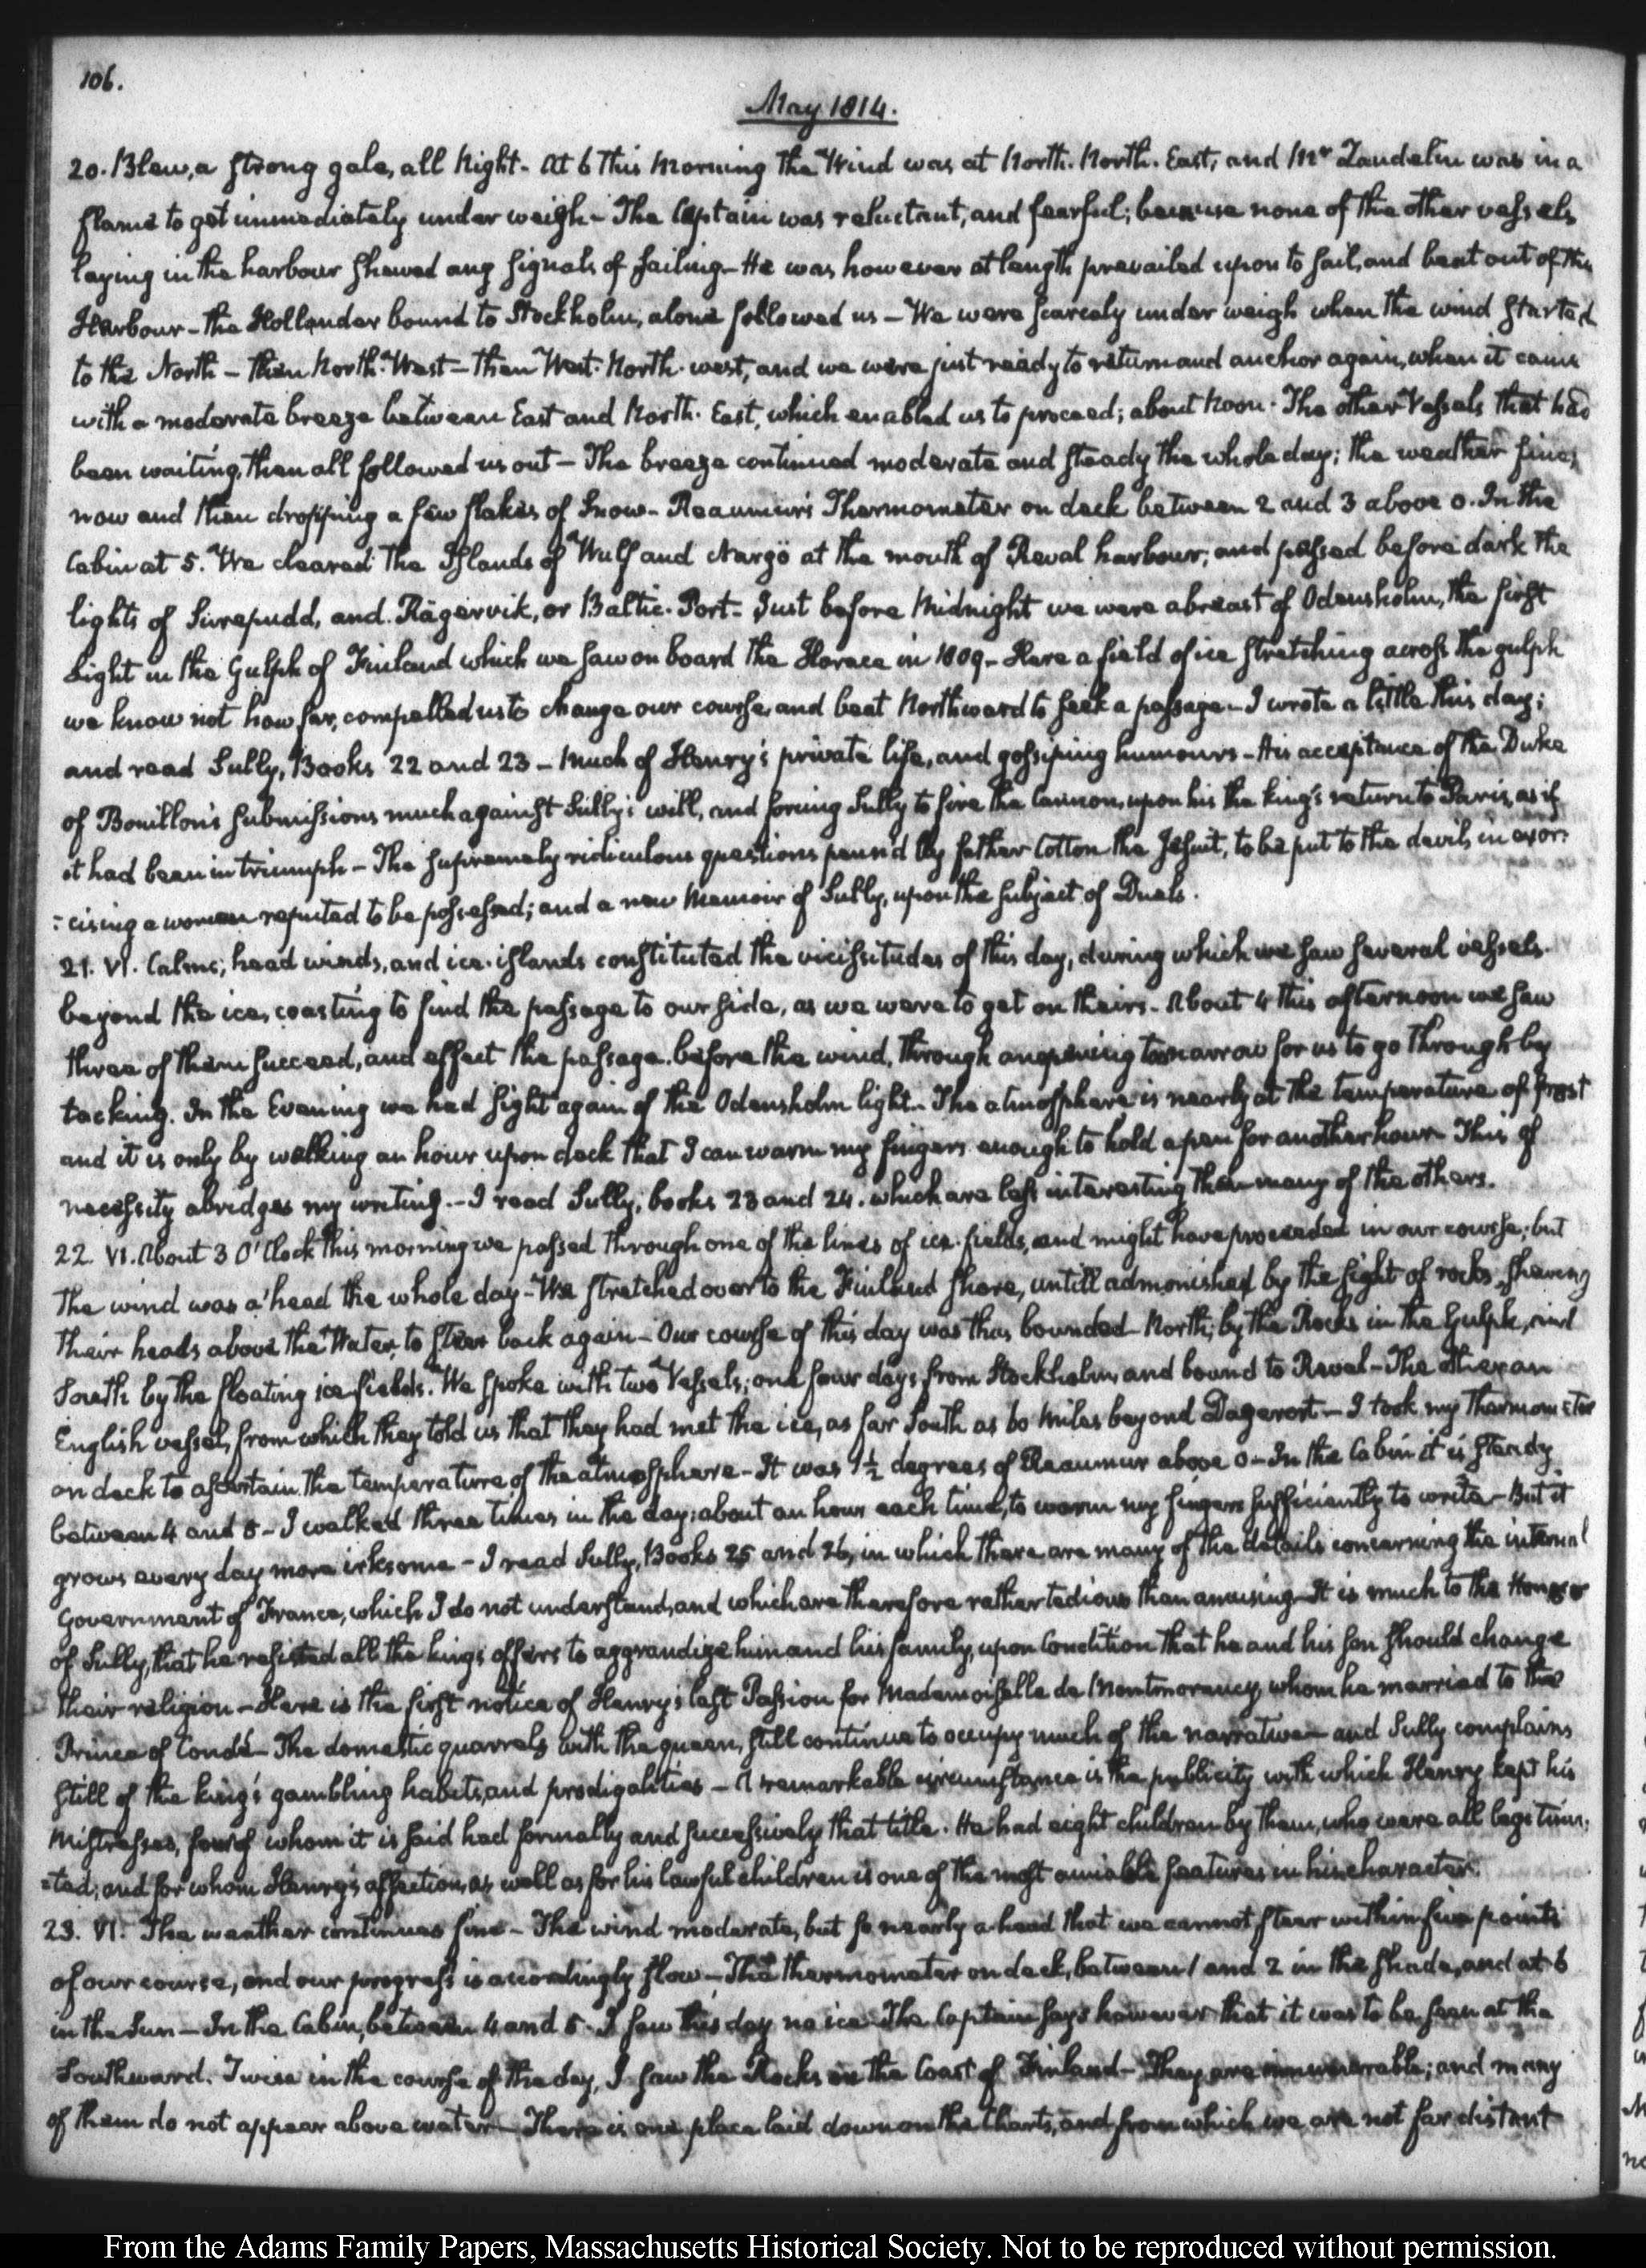 106.
May 1814.
20. Blew, a strong gale, all Night. At 6 this Morning the Wind was at North. North. East, and Mr Zandelin was in a
flame to get immediately under weigh - The Captain was reluctant, and fearful; because none of the other vessels
laying in the harbour shewed any signals of sailing - He was however at length prevailed upon to sail, and beat out of the
Harbour - the Hollander bound to Stockholm, alone followed us - We were scarcely under weigh when the wind started
to the North - then North-West - then West-North-west, and we were just ready to return and anchor again, when it came
with a moderate breeze between East and North. East, which enabled us to proceed; about Noon. The other Vessels that had
been waiting, then all followed us out - The breeze continued moderate and steady the whole day; the weather fine,
now and then dropping a few flakes of Snow - Reaumur's Thermometer on deck between 2 and 3 above 0. In the
Cabin at 5. We cleared the Islands of Wulf and Nargö at the mouth of Reval harbour; and passed before dark the
lights of Surepudd, and Rägervik, or Baltic-Port - Just before Midnight we were abreast of Odensholm, the first
Light in the Gulph of Finland which we saw on board the Horace in 1809 - Here a field of ice stretching across the gulph
we know not how far, compelled us to change our course, and beat Northward to seek a passage - I wrote a little this day;
and read Sully, Books 22 and 23 - Much of Henry's private life, and gossiping humours - His acceptance of the Duke
of Bouillon's submissions much against Sully's will, and forcing Sully to fire the Cannon, upon his the king's return to Paris, as if
it had been in triumph - The supremely ridiculous questions penn'd by father Cotton the Jesuit, to be put to the devil, in exor:
:cising a woman reputed to be possessed; and a new Memoir of Sully, upon the subject of Duels.
21. VI. Calms, head winds, and ice-islands constituted the vicissitudes of this day, during which we saw several vessels
beyond the ice, coasting to find the passage to our side, as we were to get on theirs - About 4 this afternoon we saw
three of them succeed, and effect the passage before the wind, through an opening too narrow for us to go through by
tacking. In the Evening we had sight again of the Odensholm light - The atmosphere is nearly at the temperature of frost
and it is only by walking an hour upon deck that I can warm my fingers enough to hold a pen for another hour - This of
necessity abridges my writing. - I read Sully, books 23 and 24. which are less interesting than many of the others.
22. VI. About 3 O'Clock this morning we passed through one of the lines of ice-fields, and might have proceeded in our course; but
the wind was a'head the whole day - We stretched over to the Finland shore, untill admonished by the sight of rocks shewing
their heads above the Water, to steer back again - Our course of this day was thus bounded - North; by the Rocks in the Gulph, and
South by the floating ice-fields. We spoke with two Vessels; one four days from Stockholm, and bound to Reval - The other an
English vessel, from which they told us that they had met the ice, as far South as 60 Miles beyond Dagerort - I took my Thermometer
on deck to ascertain the temperature of the atmosphere - It was 1½ degrees of Reaumur above 0 - In the Cabin it is steady
between 4 and 5 - I walked three times in the day; about an hour each time, to warm my fingers sufficiently to write - But it
grows every day more irksome - I read Sully, Books 25 and 26, in which there are many of the details concerning the internal
Government of France, which I do not understand, and which are therefore rather tedious than amusing - It is much to the Honour
of Sully, that he resisted all the king's offers to aggrandize him and his family, upon Condition that he and his son should change
their religion - Here is the first notice of Henry's last Passion for Mademoiselle de Montmorency, whom he married to the
Prince of Condé - The domestic quarrels with the queen, still continue to occupy much of the narrative - and Sully complains
still of the king's gambling habits, and prodigalities - A remarkable circumstance is the publicity with which Henry kept his
Mistresses, four of whom it is said had formally and successively that title. He had eight children by them, who were all legitim:
:ted; and for whom Henry's affection, as well as for his lawful children is one of the most amiable features in his character.
23. VI. The weather continues fine - The wind moderate, but so nearly a-head that we cannot steer within five points
of our course, and our progress is accordingly slow - The thermometer on deck, between 1 and 2 in the shade, and at 6
in the Sun - In the Cabin, between 4 and 5. I saw this day no ice - The Captain says however that it was to be seen at the
Southward. Twice in the course of the day, I saw the Rocks on the Coast of Finland - They are innumerable; and many
of them do not appear above water - There is one place laid down on the Charts, and from which we are not far distant
From the Adams Family Papers, Massachusetts Historical Society. Not to be reproduced without permission.